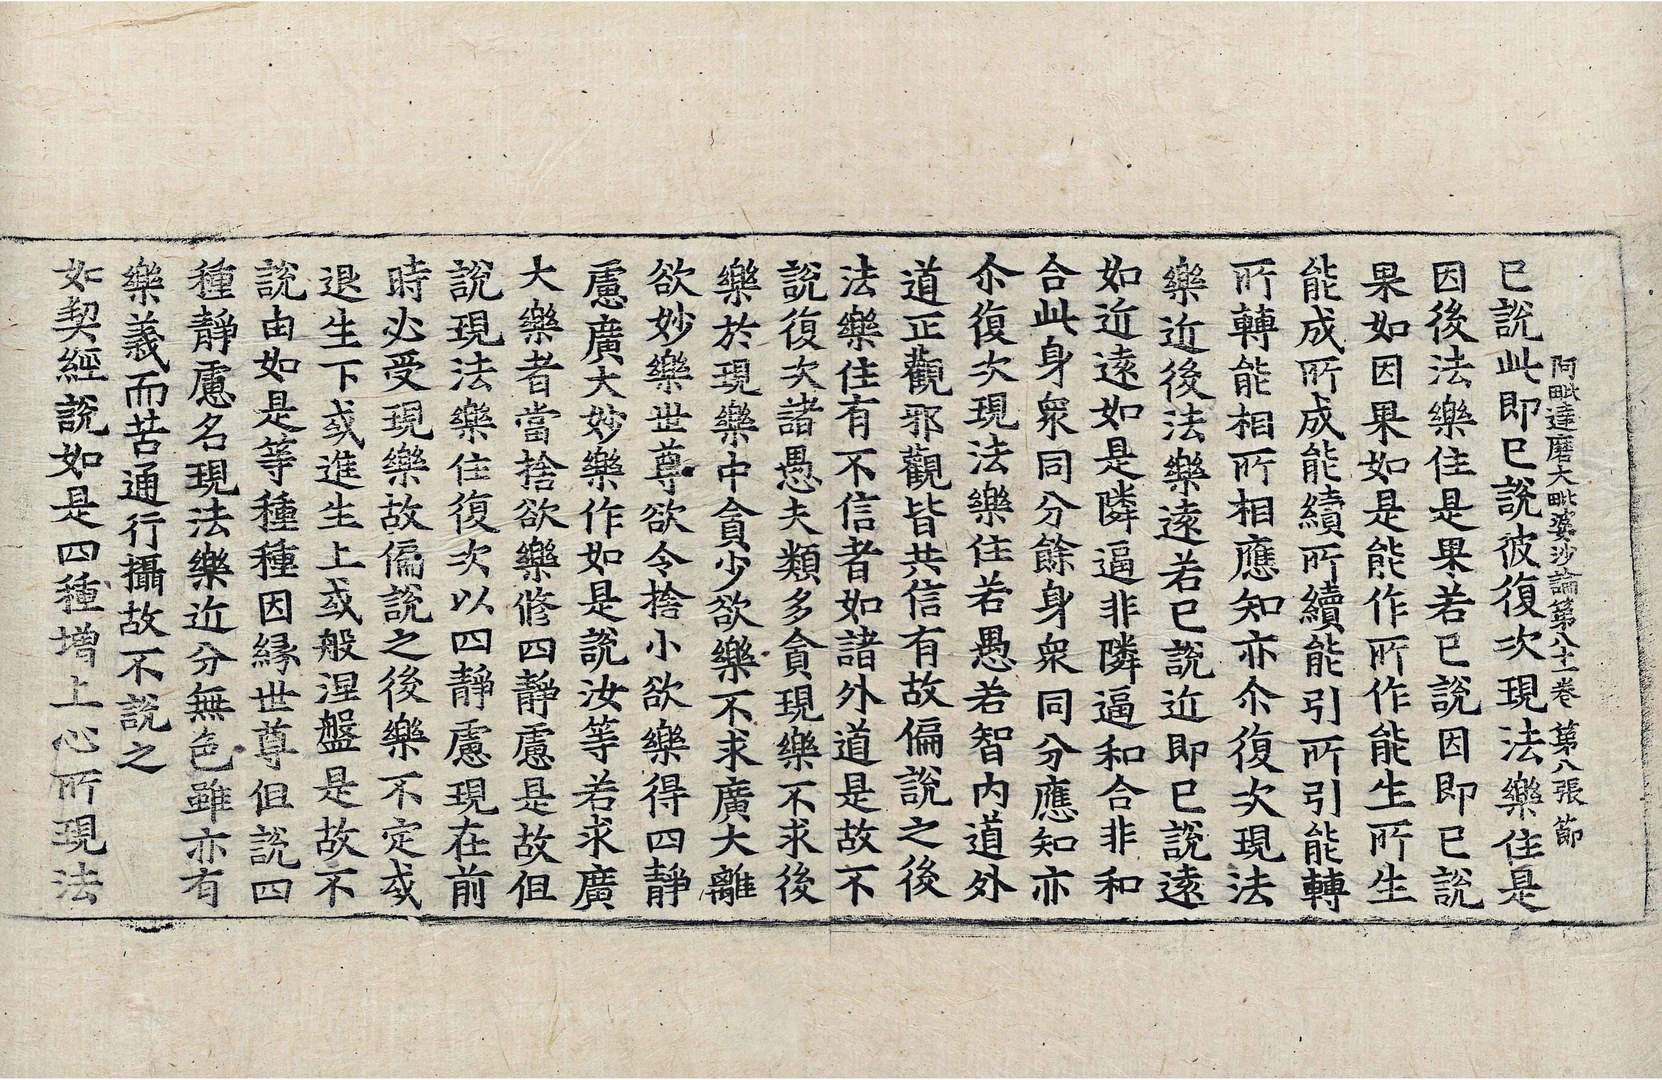 阿毗達磨大毗婆沙論第八十一卷 第八張 節
已說此即已說彼復次現法樂住是
因後法樂住是果若已說因即已說
果如因果如是能作所作能生所生
能成所成能續所續能引所引能轉
所轉能相所相應知亦尒復次現法
樂近後法樂遠若已說近即已說遠
如近遠如是隣逼非隣逼和合非和
合此身衆同分餘身衆同分應知亦
尒復次現法樂住若愚若智內道外
道正觀邪觀皆共信有故偏說之後
法樂住有不信者如諸外道是故不
說復次諸愚夫類多貪現樂不求後
樂於現樂中貪少欲樂不求廣大離
欲妙樂世尊欲令捨小欲樂得四靜
慮廣大妙樂作如是說汝等若求廣
大樂者當捨欲樂修四靜慮是故但
說現法樂住復次以四靜慮現在前
時必受現樂故偏說之後樂不定或
退生下或進生上或般涅盤是故不
說由如是等種種因緣世尊但說四
種靜慮名現法樂近分無色雖亦有
樂義而苦通行攝故不說之
如契經說如是四種增上心所現法